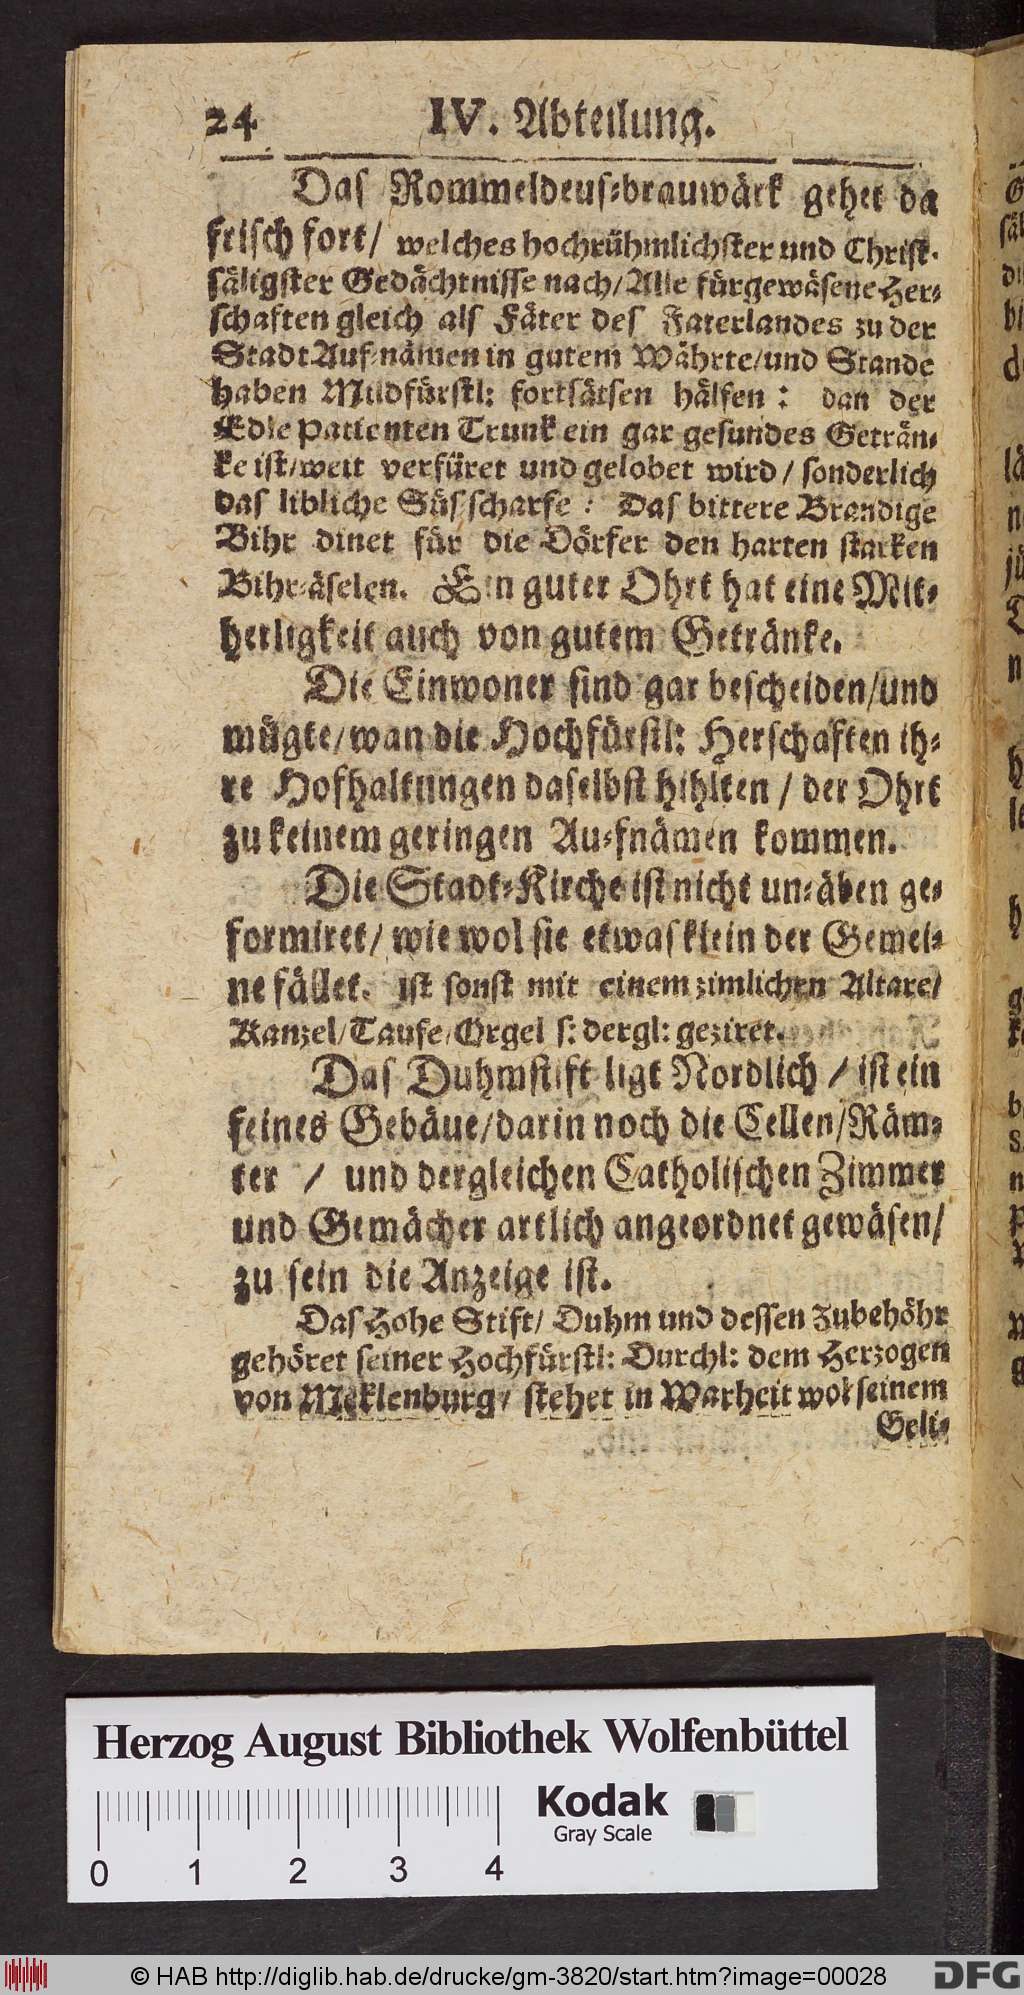 24 IV. Abteilung.
Das Rommeldeus-brauwärk gehet da
frisch fort/ welches hochrühmlichster und Christ-
säligster Gedächtnisse nach/ Alle fürgewäsene Her-
schaften gleich als Fäter des Faterlandes zu der
Stadt Auf-nämen in gutem Währte/ und Stande
haben Mildfürstl: fortsätsen hälfen: dan der
Edle Patienten Trunk ein gar gesundes Geträn-
ke ist/ weit verfüret und gelobet wird/ sonderlich
das libliche Süsscharfe: Das bittere Brandige
Bihr dinet für die Dörfer den harten starken
Bihr-äselen. Ein guter Ohrt hat eine Mit-
herligkeit auch von gutem Getränke.
Die Einwoner sind gar bescheiden/ und
mügte/ wan die Hochfürstl: Herschaften ih-
re Hofhaltungen daselbst hihlten/ der Ohrt
zu keinem geringen Au-fnämen kommen.
Die Stadt-Kirche ist nicht un-äben ge-
formiret/ wie wol sie etwas klein der Gemei-
ne fället. Ist sonst mit einem zimlichen Altare/
Kanzel/ Taufe/ Orgel s: dergl: geziret.
Das Duhmstift ligt Nordlich/ ist ein
feines Gebäue/ darin noch die Cellen/ Räm-
ter / und dergleichen Catholischen Zimmer
und Gemächer artlich angeordnet gewäsen/
zu sein die Anzeige ist.
Das Hohe Stift/ Duhm und dessen Zubehöhr
gehöret seiner Hochfürstl: Durchl: dem Herzogen
von Meklenburg/ stehet in Warheit wol seinem
Geli-
Herzog August Bibliothek Wolfenbüttel
Kodak
Gray Scale
0 1 2 3 4
© HAB http://diglib.hab.de/drucke/gm-3820/start.htm?image=00028
DFG